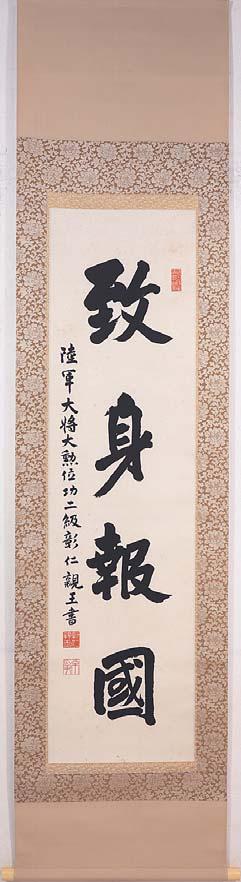 致身報國
陸軍大将大勲位功二級彰仁親王書